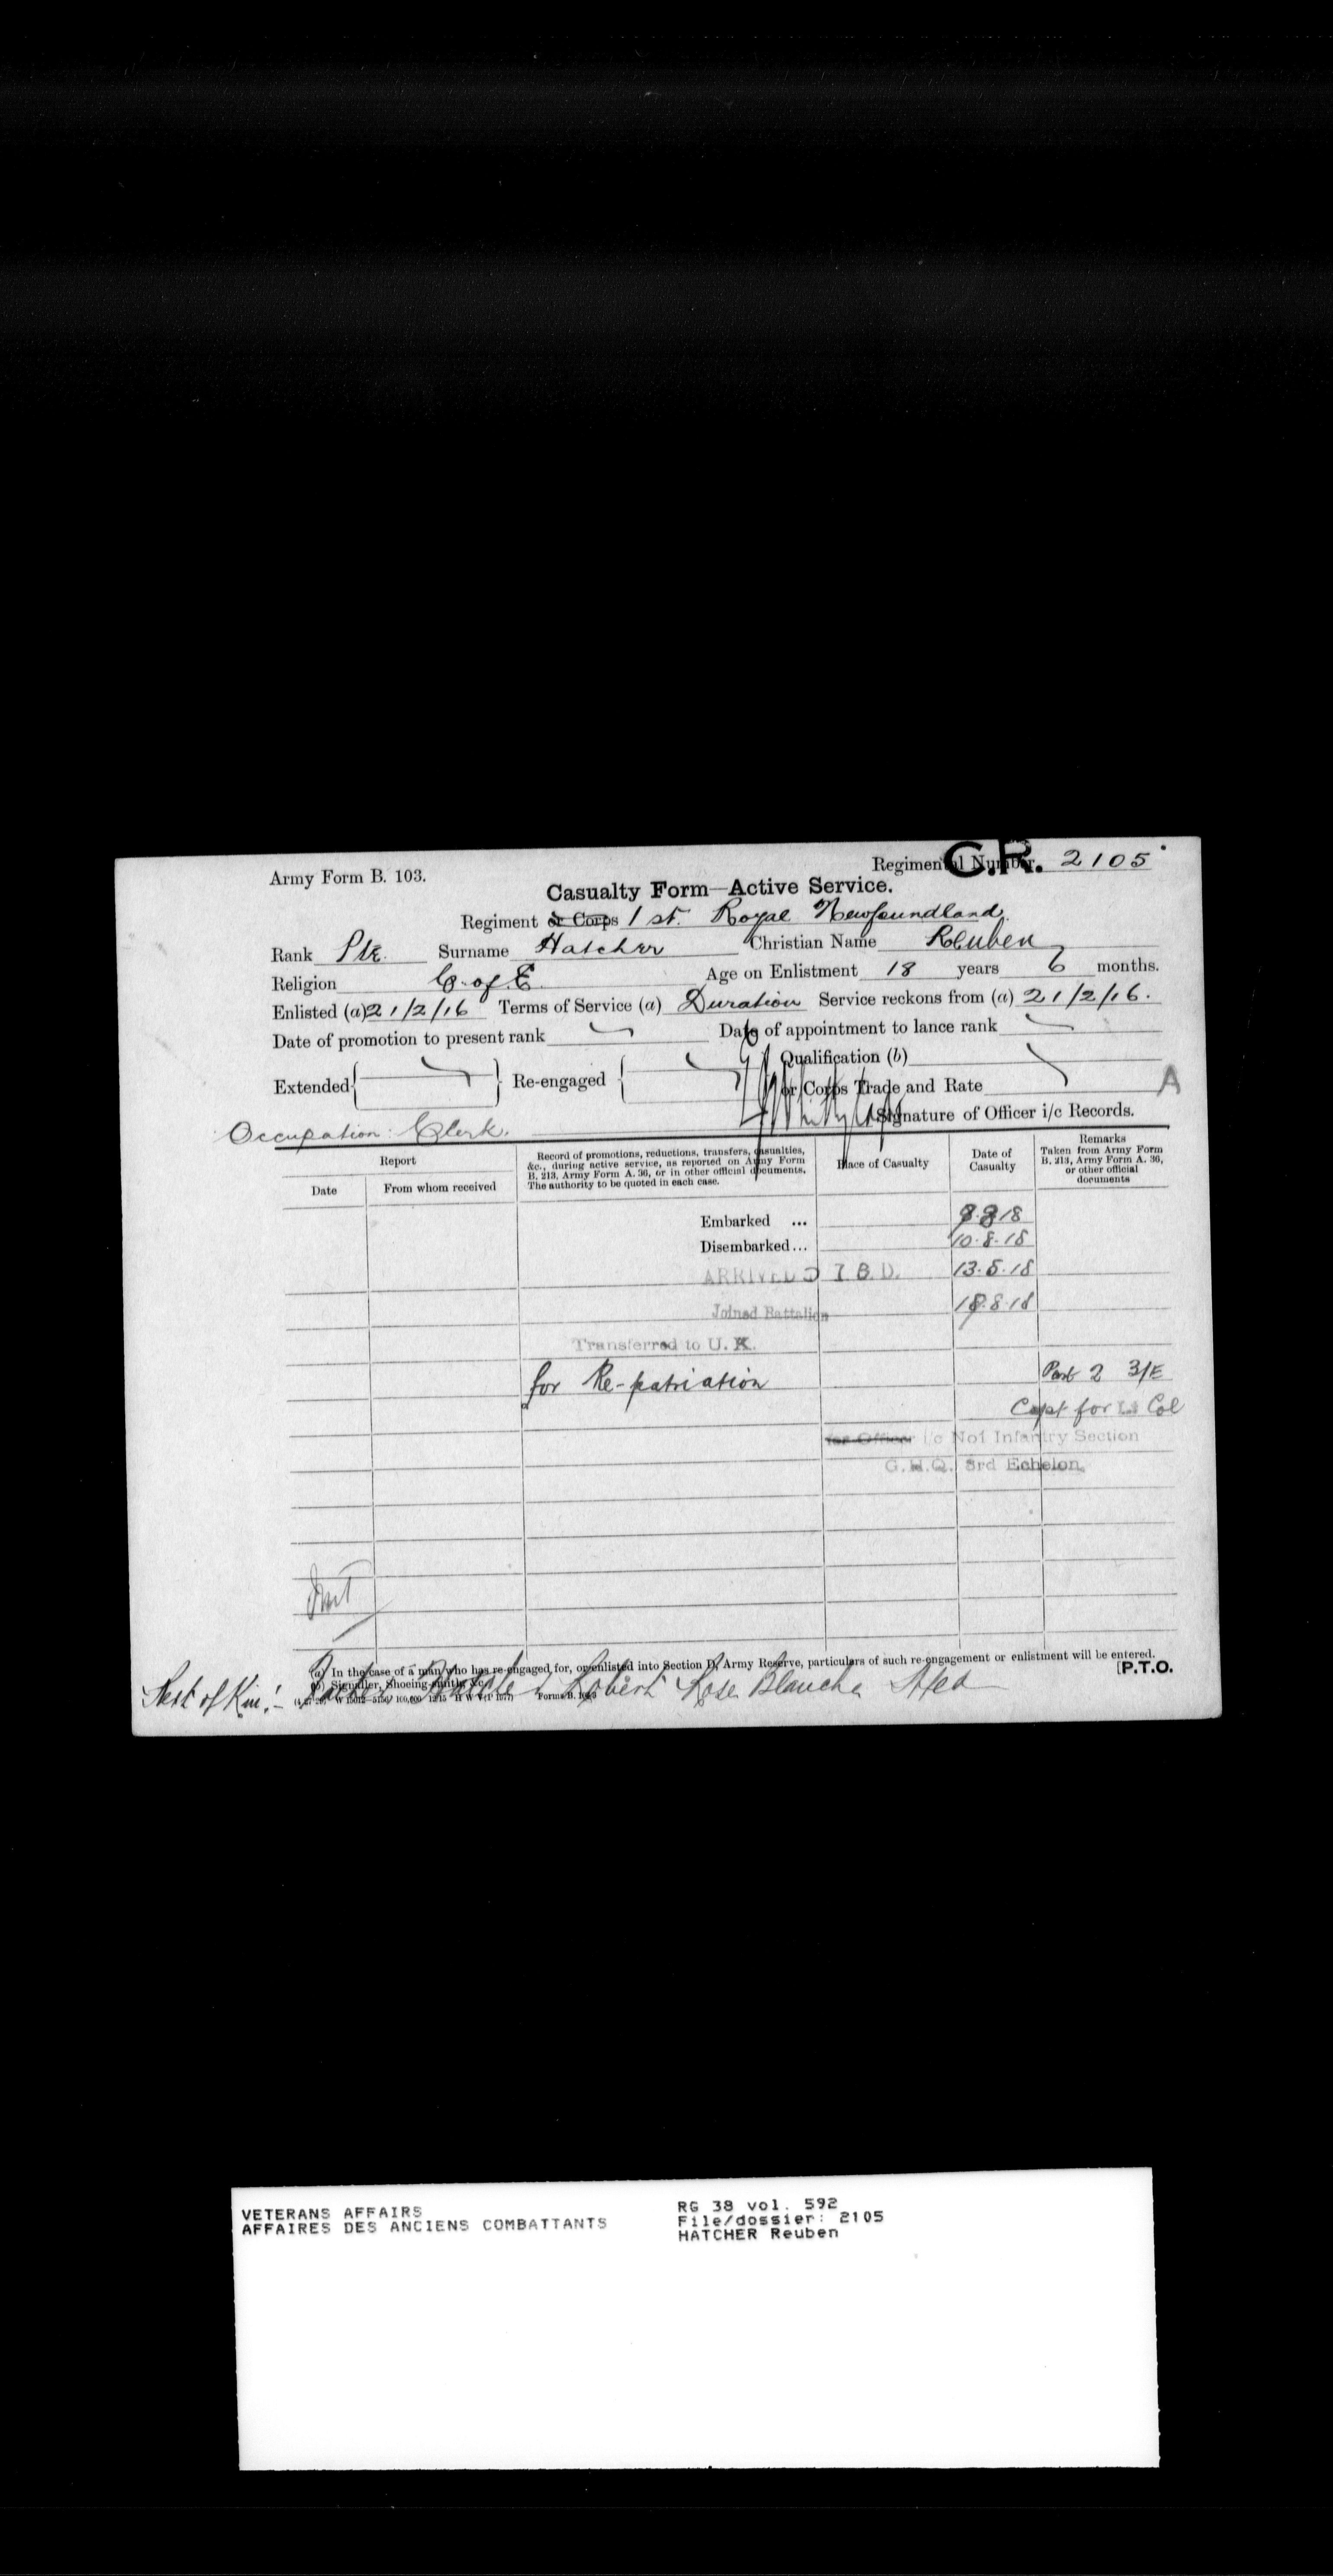 Army Form B. 103.
Regimental Number 2105
C.R.
Casualty Form—Active Service.
Regiment or Corps 1st. Royal Newfoundland.
Rank Pte. Surname Hatcher Christian Name Reuben
Religion C. of E. Age on Enlistment 18 years 6 months.
Enlisted (a) 21/2/16 Terms of Service (a) Duration Service reckons from (a) 21/2/16.
Date of promotion to present rank Date of appointment to lance rank
Extended Re-engaged Qualification (b)
or Corps Trade and Rate
A
Signature of Officer i/c Records.
Occupation: Clerk.
Report
Date From whom received
Record of promotions, reductions, transfers, casualties, &c., during active service, as reported on Army Form B. 213, Army Form A. 36, or in other official documents. The authority to be quoted in each case.
Place of Casualty
Date of Casualty
Remarks
Taken from Army Form B. 213, Army Form A. 36, or other official documents
Embarked ... 8 18
Disembarked... 10.8.18
ARRIVED I.B.D. 13.8.18
Joined Battalion 8.18
Transferred to U.K.
for Re-patriation Part 2 3/E
Capt for Lt Col
for Officer i/c No1 Infantry Section
G.H.Q. 3rd Echelon
(a) In the case of a man who has re-engaged for, or enlisted into Section D, Army Reserve, particulars of such re-engagement or enlistment will be entered.
(b) Signaller, Shoeing-smith, &c.
[P.T.O.
of Kin:- Robert Rose Blanche Nfld
VETERANS AFFAIRS
AFFAIRES DES ANCIENS COMBATTANTS
RG 38 vol. 592
File/dossier: 2105
HATCHER Reuben